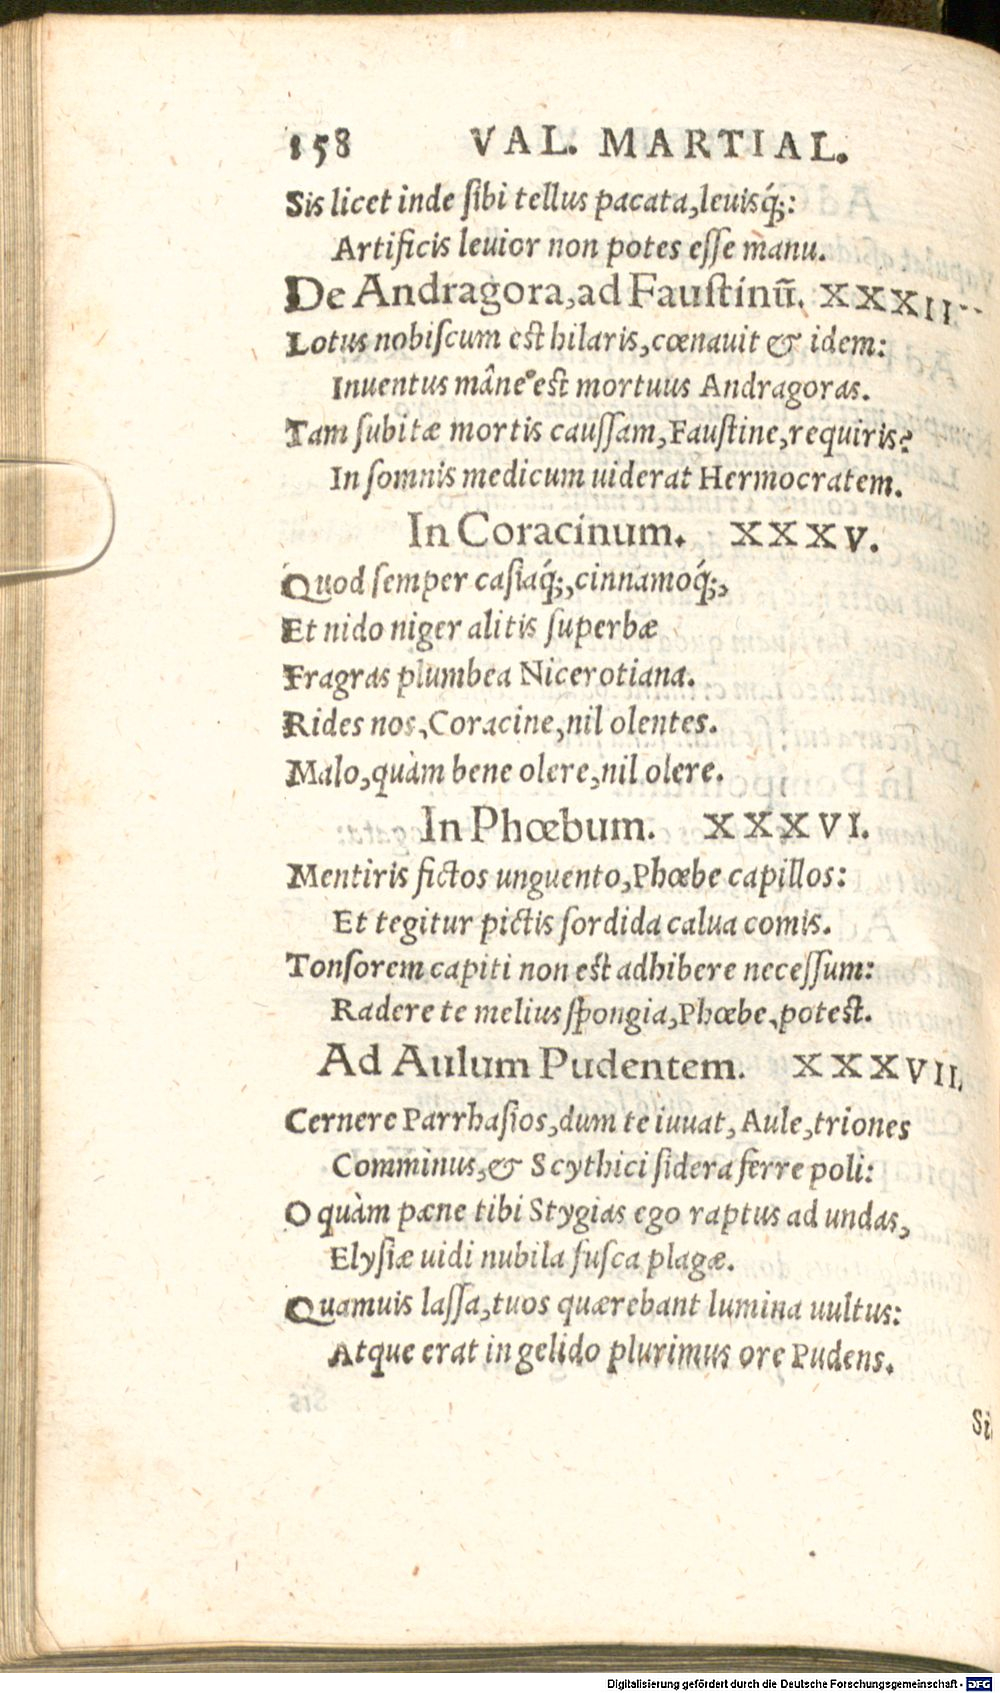 158 VAL. MARTIAL.
Sis licet inde ſibi tellus pacata, leuisq́;:
Artificis leuior non potes eſſe manu.
De Andragora, ad Fauſtinũ. XXXII
Lotus nobiſcum eſt hilaris, cœnauit & idem:
Inuentus mâne eſt mortuus Andragoras.
Tam ſubitæ mortis cauſſam, Fauſtine, requiris?
In ſomnis medicum uiderat Hermocratem.
In Coracinum. XXXV.
Quod ſemper caſiaq́;, cinnamoq́;,
Et nido niger alitis ſuperbæ
Fragras plumbea Nicerotiana.
Rides nos, Coracine, nil olentes.
Malo, quàm bene olere, nil olere.
In Phœbum. XXXVI.
Mentiris fictos unguento, Phœbe capillos:
Et tegitur pictis ſordida calua comis.
Tonſorem capiti non eſt adhibere neceſſum:
Radere te melius ſpongia, Phœbe, poteſt.
Ad Aulum Pudentem. XXXVII.
Cernere Parrhaſios, dum te iuuat, Aule, triones
Comminus, & Scythici ſidera ferre poli:
O quàm pæne tibi Stygias ego raptus ad undas,
Elyſiæ uidi nubila fuſca plagæ.
Quamuis laſſa, tuos quærebant lumina uultus:
Atque erat in gelido plurimus ore Pudens.
Digitalisierung gefördert durch die Deutsche Forschungsgemeinschaft - DFG